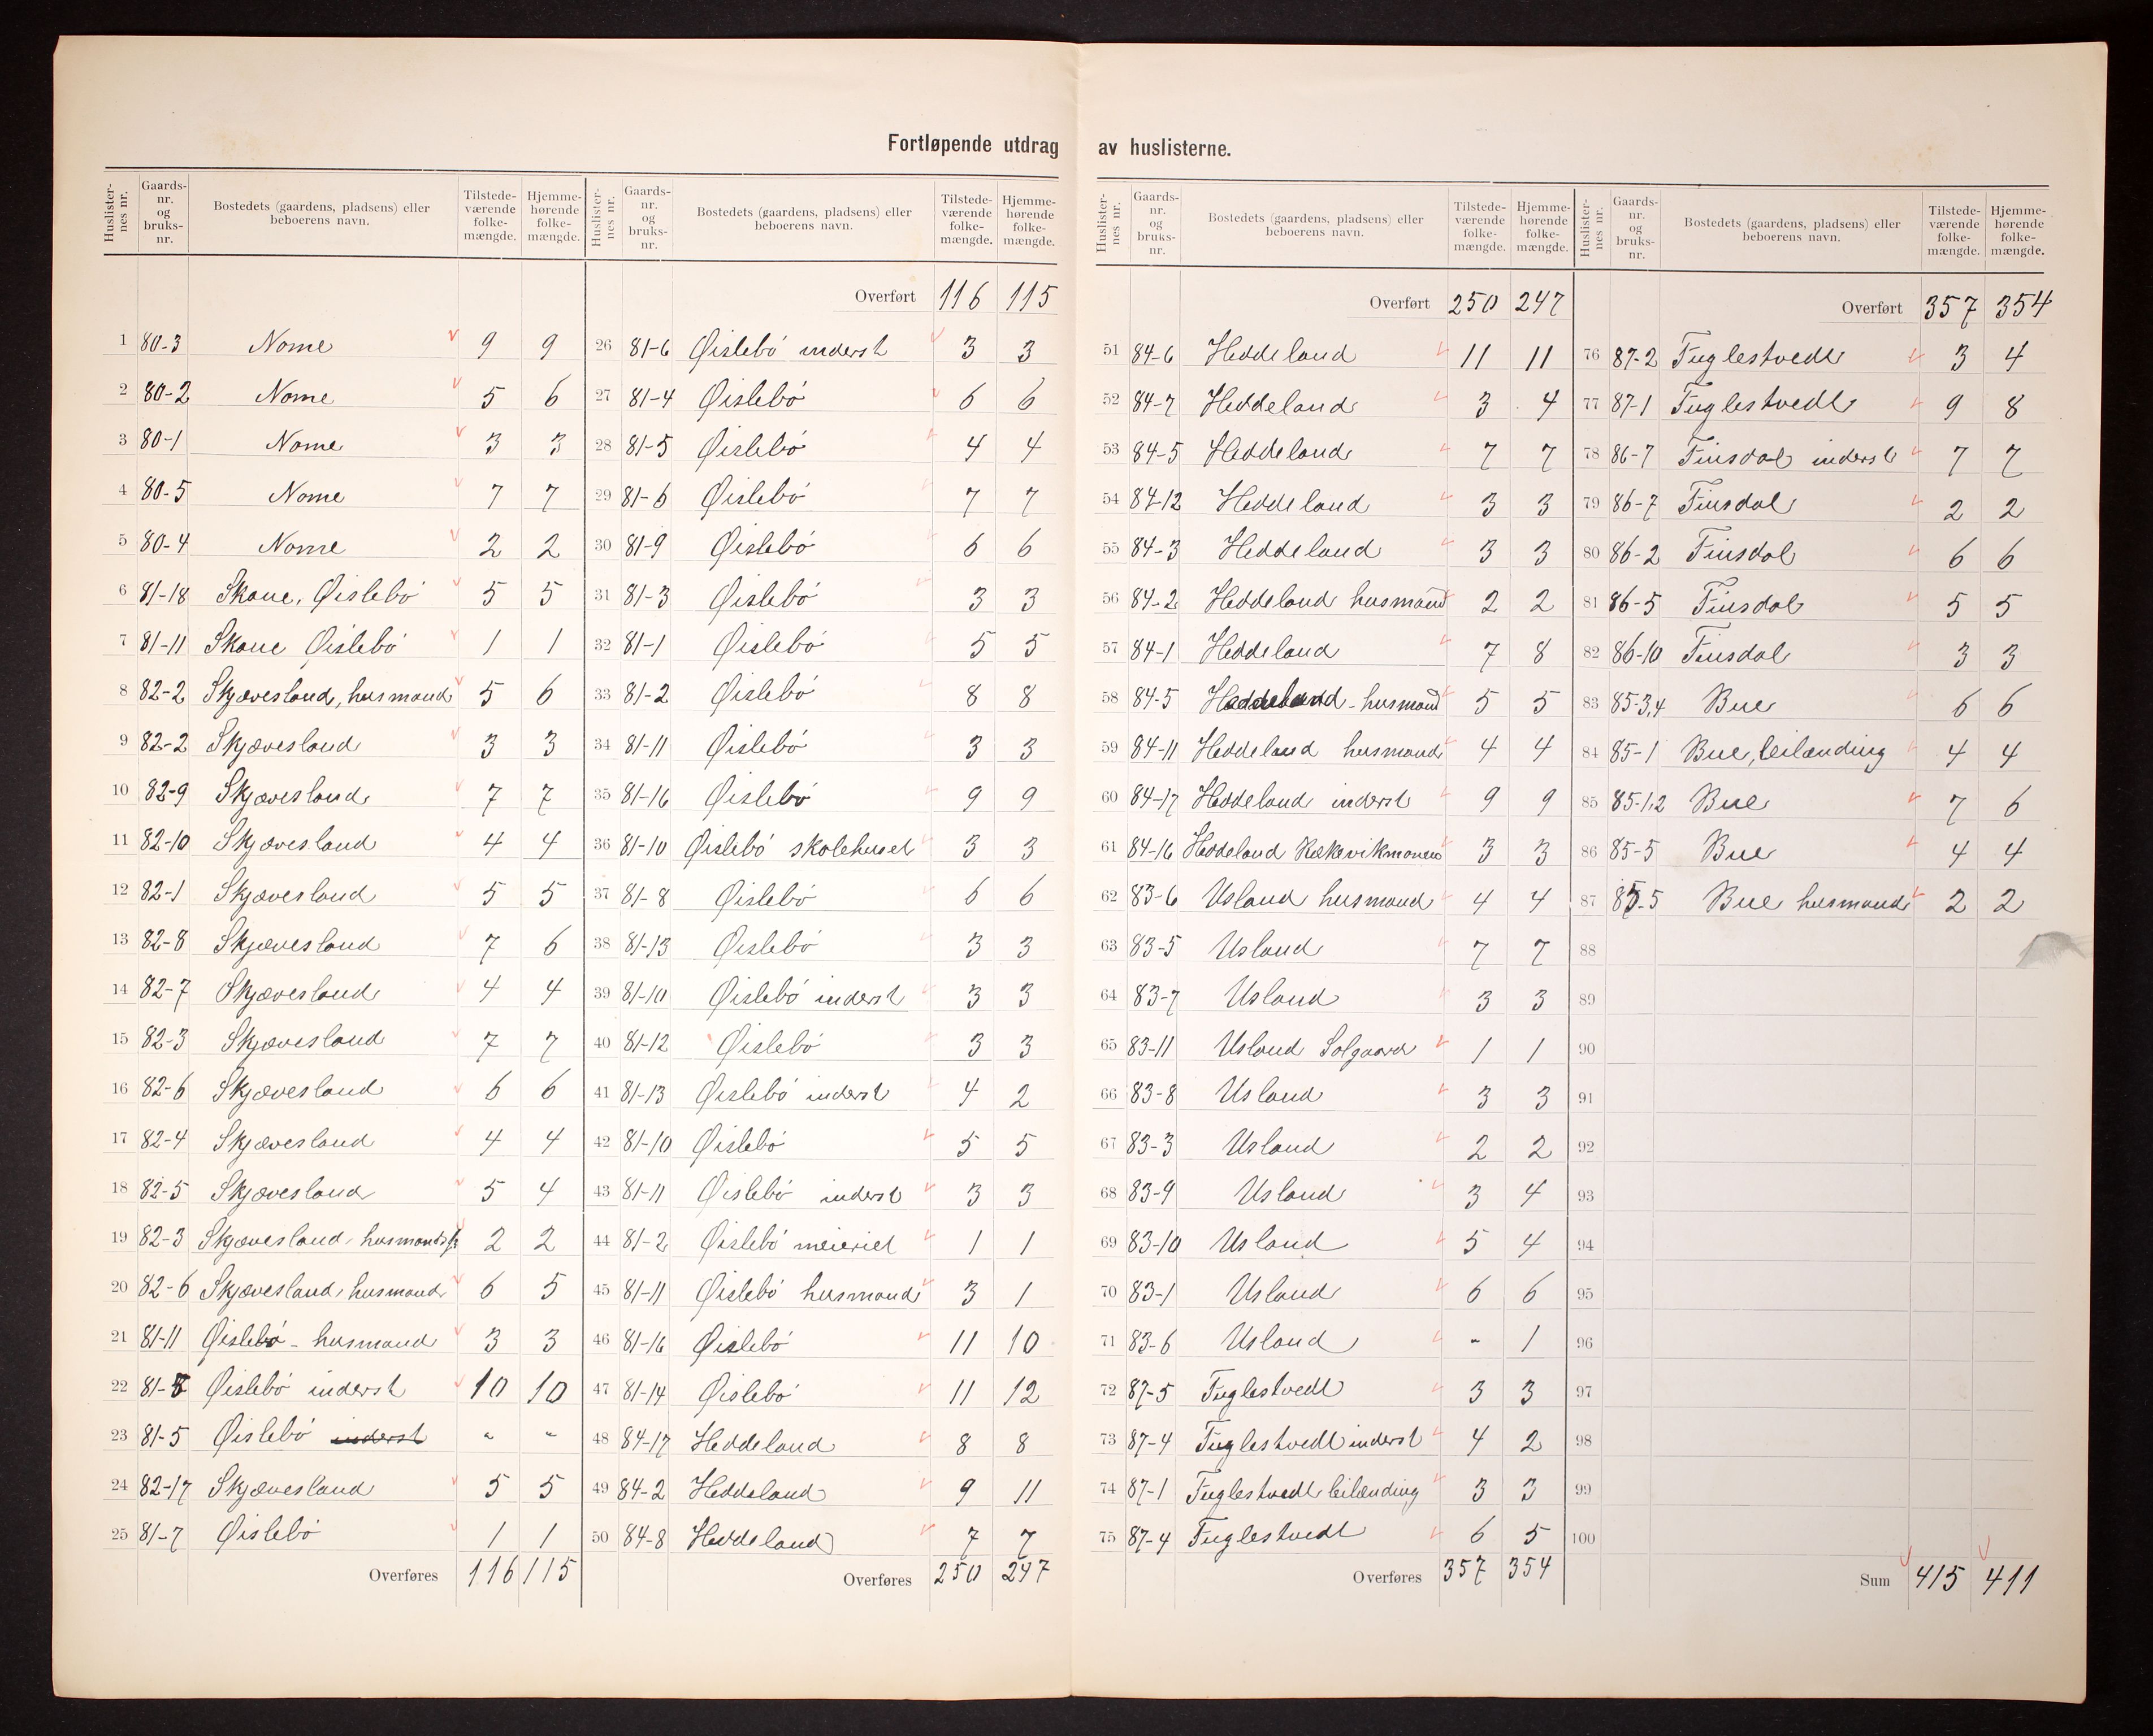 Fortløpende utdrag av huslisterne.
Huslister-nes nr. Gaards-nr. og bruks-nr. Bostedets (gaardens, pladsens) eller beboerens navn. Tilstede-værende folke-mængde. Hjemme-hørende folke-mængde.
1 80-3 Nome 9 9
2 80-2 Nome 5 6
3 80-1 Nome 3 3
4 80-5 Nome 7 7
5 80-4 Nome 2 2
6 81-18 Skaue, Øislebö 5 5
7 81-11 Skaue Øislebö 1 1
8 82-2 Skjævesland, husmand 5 6
9 82-2 Skjævesland 3 3
10 82-9 Skjævesland 7 7
11 82-10 Skjævesland 4 4
12 82-1 Skjævesland 5 5
13 82-8 Skjævesland 7 6
14 82-7 Skjævesland 4 4
15 82-3 Skjævesland 7 7
16 82-6 Skjævesland 6 6
17 82-4 Skjævesland 4 4
18 82-5 Skjævesland 5 4
19 82-3 Skjævesland, husmands 2 2
20 82-6 Skjævesland, husmand 6 5
21 81-11 Øislebö - husmand 3 3
22 81-8 Øislebö inderst 10 10
23 81-5 Øislebö inderst " "
24 82-17 Skjævesland 5 5
25 81-7 Øislebö 1 1
Overføres 116 115
Huslister-nes nr. Gaards-nr. og bruks-nr. Bostedets (gaardens, pladsens) eller beboerens navn. Tilstede-værende folke-mængde. Hjemme-hørende folke-mængde.
Overført 116 115
26 81-6 Øislebö inderst 3 3
27 81-4 Øislebö 6 6
28 81-5 Øislebö 4 4
29 81-6 Øislebö 7 7
30 81-9 Øislebö 6 6
31 81-3 Øislebö 3 3
32 81-1 Øislebö 5 5
33 81-2 Øislebö 8 8
34 81-11 Øislebö 3 3
35 81-16 Øislebö 9 9
36 81-10 Øislebö skolehuset 3 3
37 81-8 Øislebö 6 6
38 81-13 Øislebö 3 3
39 81-10 Øislebö inderst 3 3
40 81-12 Øislebö 3 3
41 81-13 Øislebö inderst 4 2
42 81-10 Øislebö 5 5
43 81-11 Øislebö inderst 3 3
44 81-2 Øislebö meieriet 1 1
45 81-11 Øislebö husmand 3 1
46 81-16 Øislebö 11 10
47 81-14 Øislebö 11 12
48 84-17 Heddeland 8 8
49 84-2 Heddeland 9 11
50 84-8 Heddeland 7 7
Overføres 250 247
Huslister-nes nr. Gaards-nr. og bruks-nr. Bostedets (gaardens, pladsens) eller beboerens navn. Tilstede-værende folke-mængde. Hjemme-hørende folke-mængde.
Overført 250 247
51 84-6 Heddeland 11 11
52 84-7 Heddeland 3 4
53 84-5 Heddeland 7 7
54 84-12 Heddeland 3 3
55 84-3 Heddeland 3 3
56 84-2 Heddeland husmand 2 2
57 84-1 Heddeland 7 8
58 84-5 Heddeland - husmand 5 5
59 84-11 Heddeland husmand 4 4
60 84-17 Heddeland inderst 9 9
61 84-16 Heddeland Kækevikmonen 3 3
62 83-6 Usland husmand 4 4
63 83-5 Usland 7 7
64 83-7 Usland 3 3
65 83-11 Usland Solgaard 1 1
66 83-8 Usland 3 3
67 83-3 Usland 2 2
68 83-9 Usland 3 4
69 83-10 Usland 5 4
70 83-1 Usland 6 6
71 83-6 Usland " 1
72 87-5 Fuglestvedt 3 3
73 87-4 Fuglestvedt inderst 4 2
74 87-1 Fuglestvedt leilænding 3 3
75 87-4 Fuglestvedt 6 5
Overføres 357 354
Huslister-nes nr. Gaards-nr. og bruks-nr. Bostedets (gaardens, pladsens) eller beboerens navn. Tilstede-værende folke-mængde. Hjemme-hørende folke-mængde.
Overført 357 354
76 87-2 Fuglestvedt 3 4
77 87-1 Fuglestvedt 9 8
78 86-7 Finsdal inderst 7 7
79 86-7 Finsdal 2 2
80 86-2 Finsdal 6 6
81 86-5 Finsdal 5 5
82 86-10 Finsdal 3 3
83 85-3,4 Bue 6 6
84 85-1 Bue, leilænding 4 4
85 85-1,2 Bue 7 6
86 85-5 Bue 4 4
87 85-5 Bue husmand 2 2
88
89
90
91
92
93
94
95
96
97
98
99
100
Sum 415 411